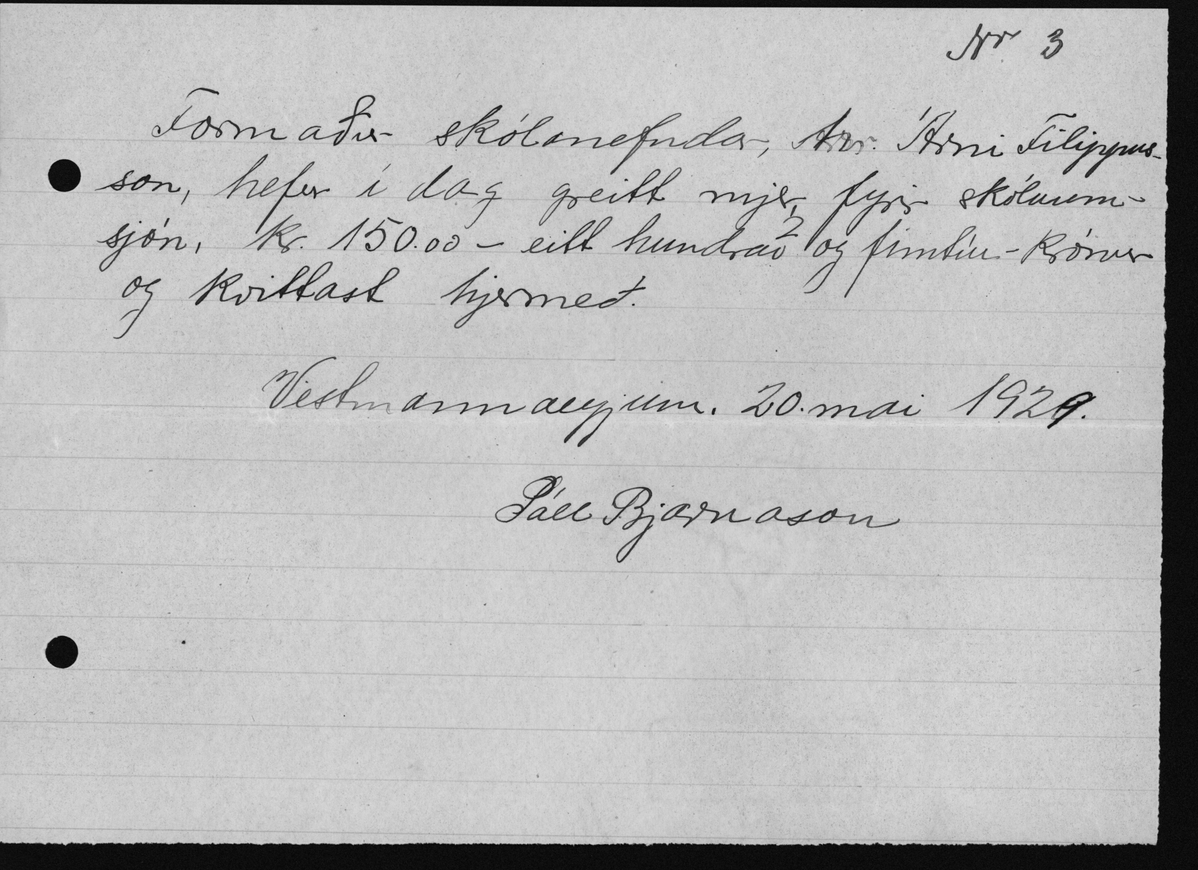 Nr 3
Formaður skólanefndar, hr. Árni Filippus-
son, hefur í dag greitt mjer, fyrir skólaum-
sjón, kr. 150.00 - eitt hundrað og fimtíu - krónur
og kvittast hjermeð.
Vestmannaeyjum. 20. maí 1929.
Páll Bjarnason